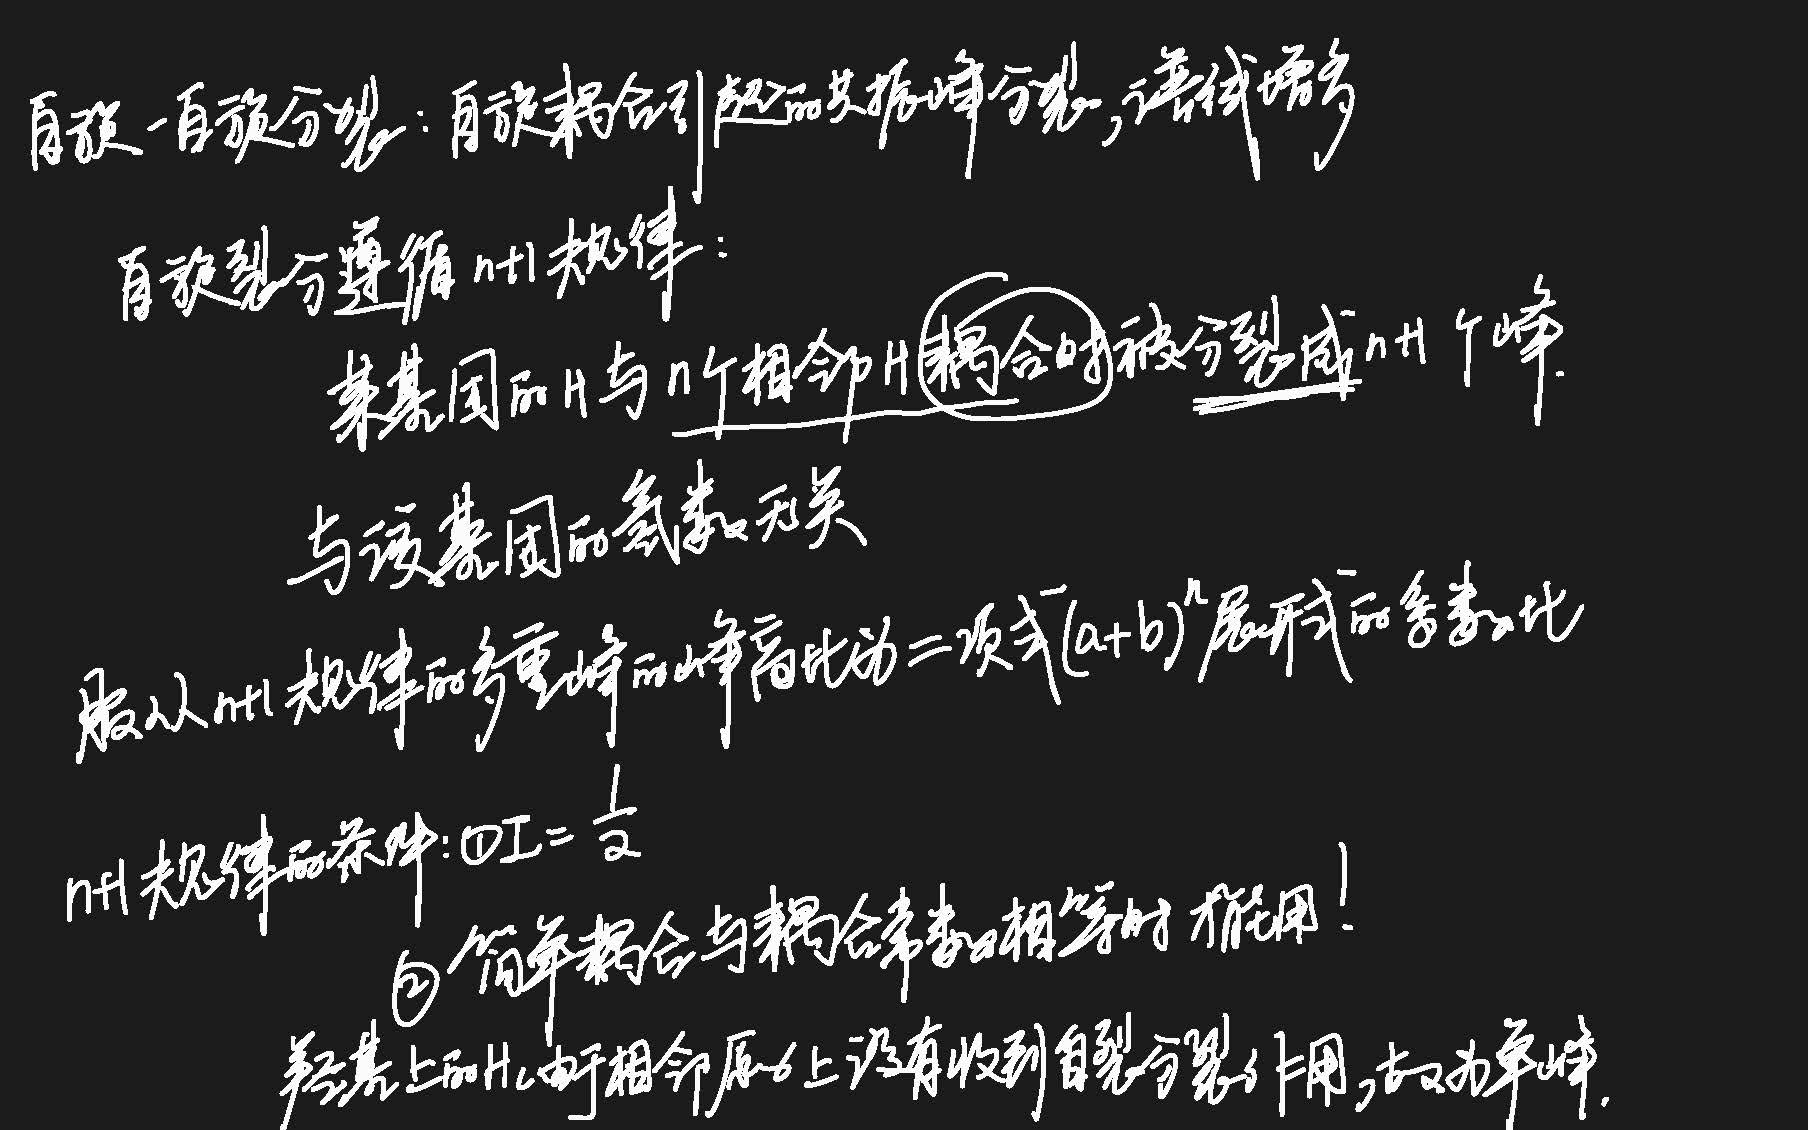 自旋-自旋分裂:自旋耦合引起的共振峰分裂,谱线增多
自旋裂分遵循n+1规律:
某基团的H与n个相邻H耦合时被分裂成n+1个峰.
与该基团的氢数无关
服从n+1规律的多重峰的峰高比为二项式(a+b)^n展开式的系数比
n+1规律的条件:①I=1/2
②简单耦合与耦合常数相等时才能用!
羟基上的H,由于相邻原子上没有收到自裂分裂作用,故为单峰.